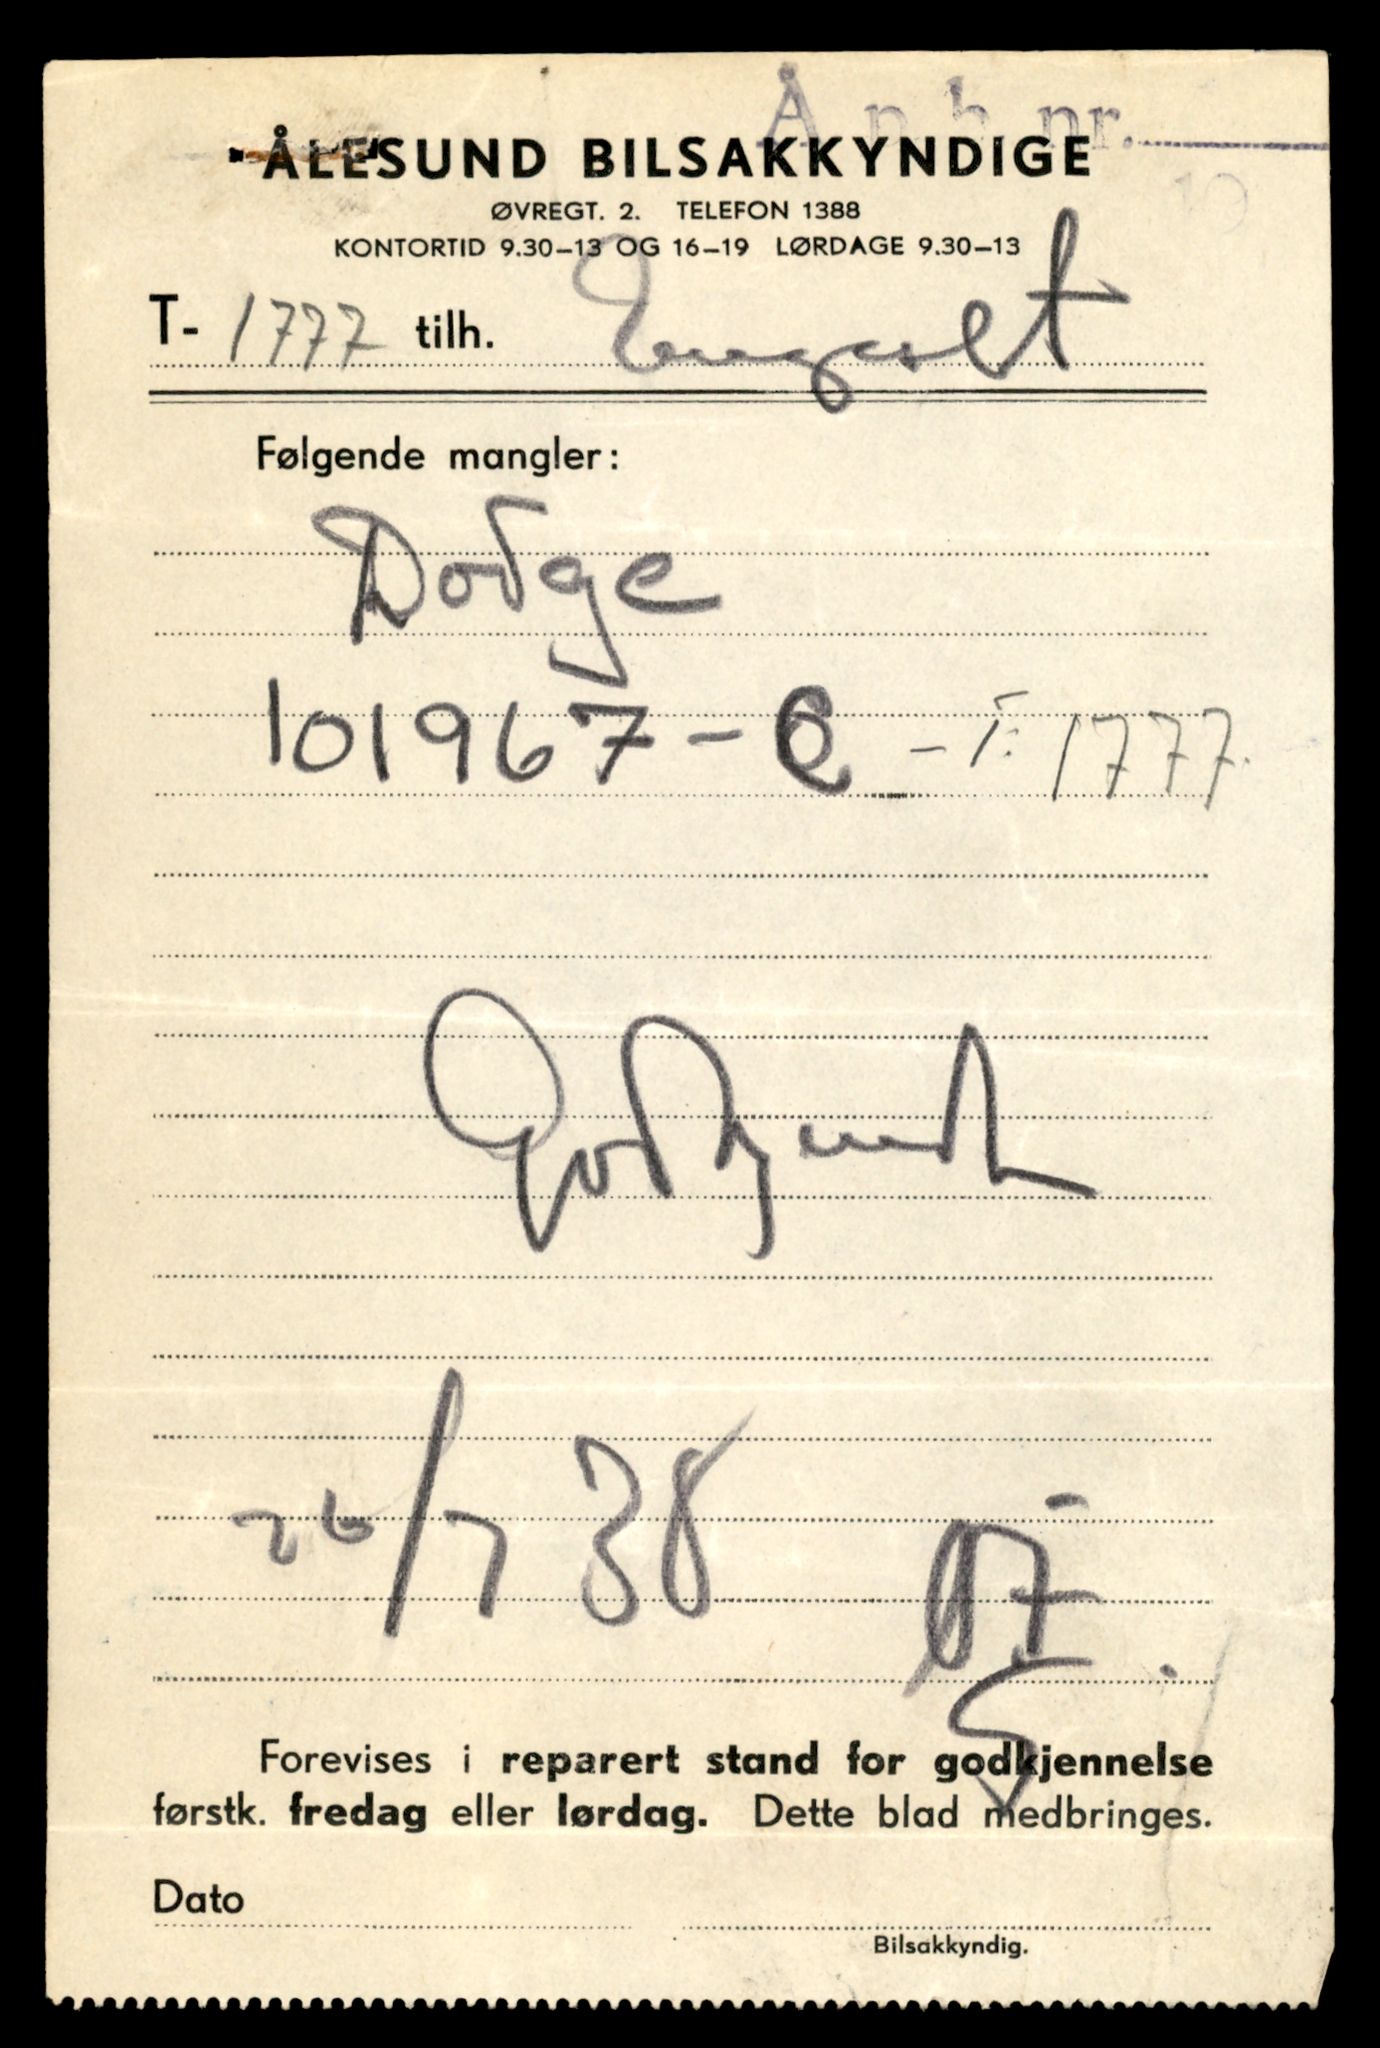 Å n b nr.
ÅLESUND BILSAKKYNDIGE
ØVREGT. 2. TELEFON 1388
KONTORTID 9.30–13 OG 16–19 LØRDAGE 9.30–13
T- 1777 tilh.
Følgende mangler:
Dodge
101967 – – T: 1777.
Godkjendt
26/7 38
Forevises i reparert stand for godkjennelse
førstk. fredag eller lørdag. Dette blad medbringes.
Dato
Bilsakkyndig.